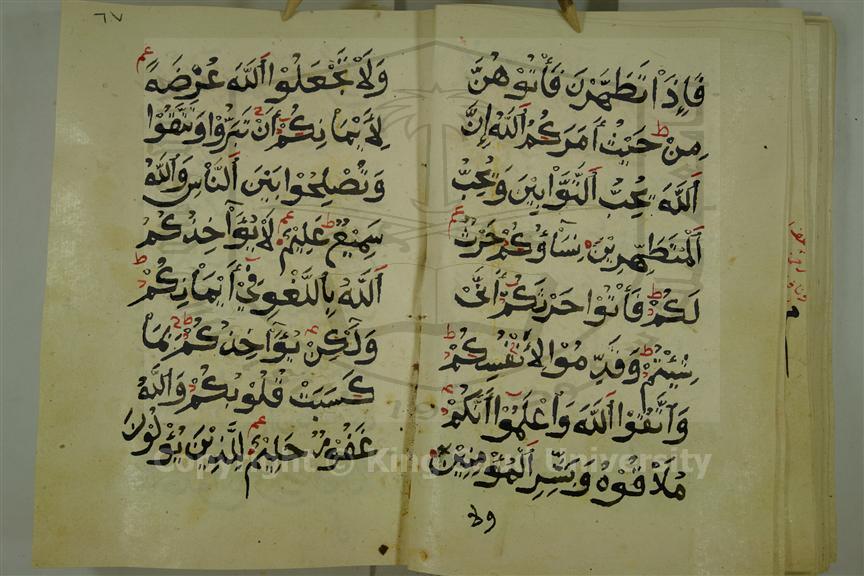 فَإِذَا تَطَهَّرْنَ فَأْتُوهُنَّ
مِنْ حَيْثُ أَمَرَكُمُ اللَّهُ إِنَّ
اللَّهَ يُحِبُّ التَّوَّابِينَ وَيُحِبُّ
الْمُتَطَهِّرِينَ نِسَاؤُكُمْ حَرْثٌ
لَكُمْ فَأْتُوا حَرْثَكُمْ أَنَّى
شِئْتُمْ وَقَدِّمُوا لِأَنْفُسِكُمْ
وَاتَّقُوا اللَّهَ وَاعْلَمُوا أَنَّكُمْ
مُلَاقُوهُ وَبَشِّرِ الْمُؤْمِنِينَ
٦٧
وَلَا تَجْعَلُوا اللَّهَ عُرْضَةً
لِأَيْمَانِكُمْ أَنْ تَبَرُّوا وَتَتَّقُوا
وَتُصْلِحُوا بَيْنَ النَّاسِ وَاللَّهُ
سَمِيعٌ عَلِيمٌ لَا يُؤَاخِذُكُمُ
اللَّهُ بِاللَّغْوِ فِي أَيْمَانِكُمْ
وَلَكِنْ يُؤَاخِذُكُمْ بِمَا
كَسَبَتْ قُلُوبُكُمْ وَاللَّهُ
غَفُورٌ حَلِيمٌ لِلَّذِينَ يُؤْلُونَ
Copyright © King Saud University